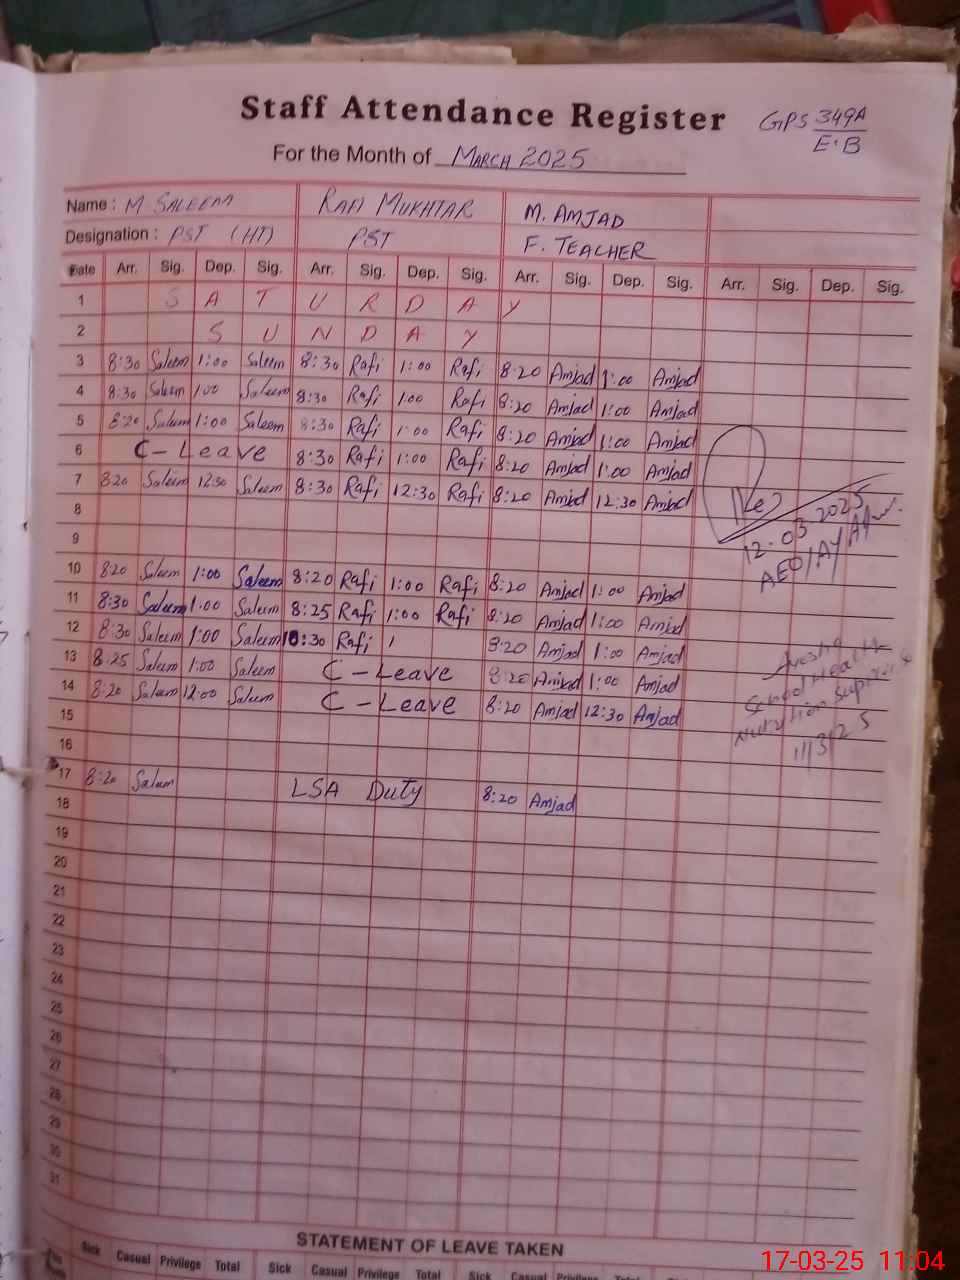 Staff Attendance Register
GPS 349A
E.B
For the Month of MARCH 2025
Name : M SALEEM RAFI MUKHTAR M. AMJAD
Designation : PST (HT) PST F. TEACHER
Date Arr. Sig. Dep. Sig. Arr. Sig. Dep. Sig. Arr. Sig. Dep. Sig. Arr. Sig. Dep. Sig.
1 S A T U R D A Y
2 S U N D A Y
3 8:30 Saleem 1:00 Saleem 8:30 Rafi 1:00 Rafi 8:20 Amjad 1:00 Amjad
4 8:30 Saleem 1:00 Saleem 8:30 Rafi 1:00 Rafi 8:20 Amjad 1:00 Amjad
5 8:20 Saleem 1:00 Saleem 8:30 Rafi 1:00 Rafi 8:20 Amjad 1:00 Amjad
6 C - Leave 8:30 Rafi 1:00 Rafi 8:20 Amjad 1:00 Amjad
7 8:20 Saleem 12:30 Saleem 8:30 Rafi 12:30 Rafi 8:20 Amjad 12:30 Amjad
8
12.03.2025
9
AEO/AY
10 8:20 Saleem 1:00 Saleem 8:20 Rafi 1:00 Rafi 8:20 Amjad 1:00 Amjad
11 8:30 Saleem 1:00 Saleem 8:25 Rafi 1:00 Rafi 8:20 Amjad 1:00 Amjad
12 8:30 Saleem 1:00 Saleem 10:30 Rafi 1 8:20 Amjad 1:00 Amjad
13 8:25 Saleem 1:00 Saleem C - Leave 8:20 Amjad 1:00 Amjad
14 8:20 Saleem 12:00 Saleem C - Leave 8:20 Amjad 12:30 Amjad
School Health
Nutrition
11/3/25
15
16
17 8:20 Saleem LSA Duty 8:20 Amjad
18
19
20
21
22
23
24
25
26
27
28
29
30
31
STATEMENT OF LEAVE TAKEN
Sick Casual Privilege Total Sick Casual Privilege Total Sick Casual Privilege Total Sick
17-03-25 11:04